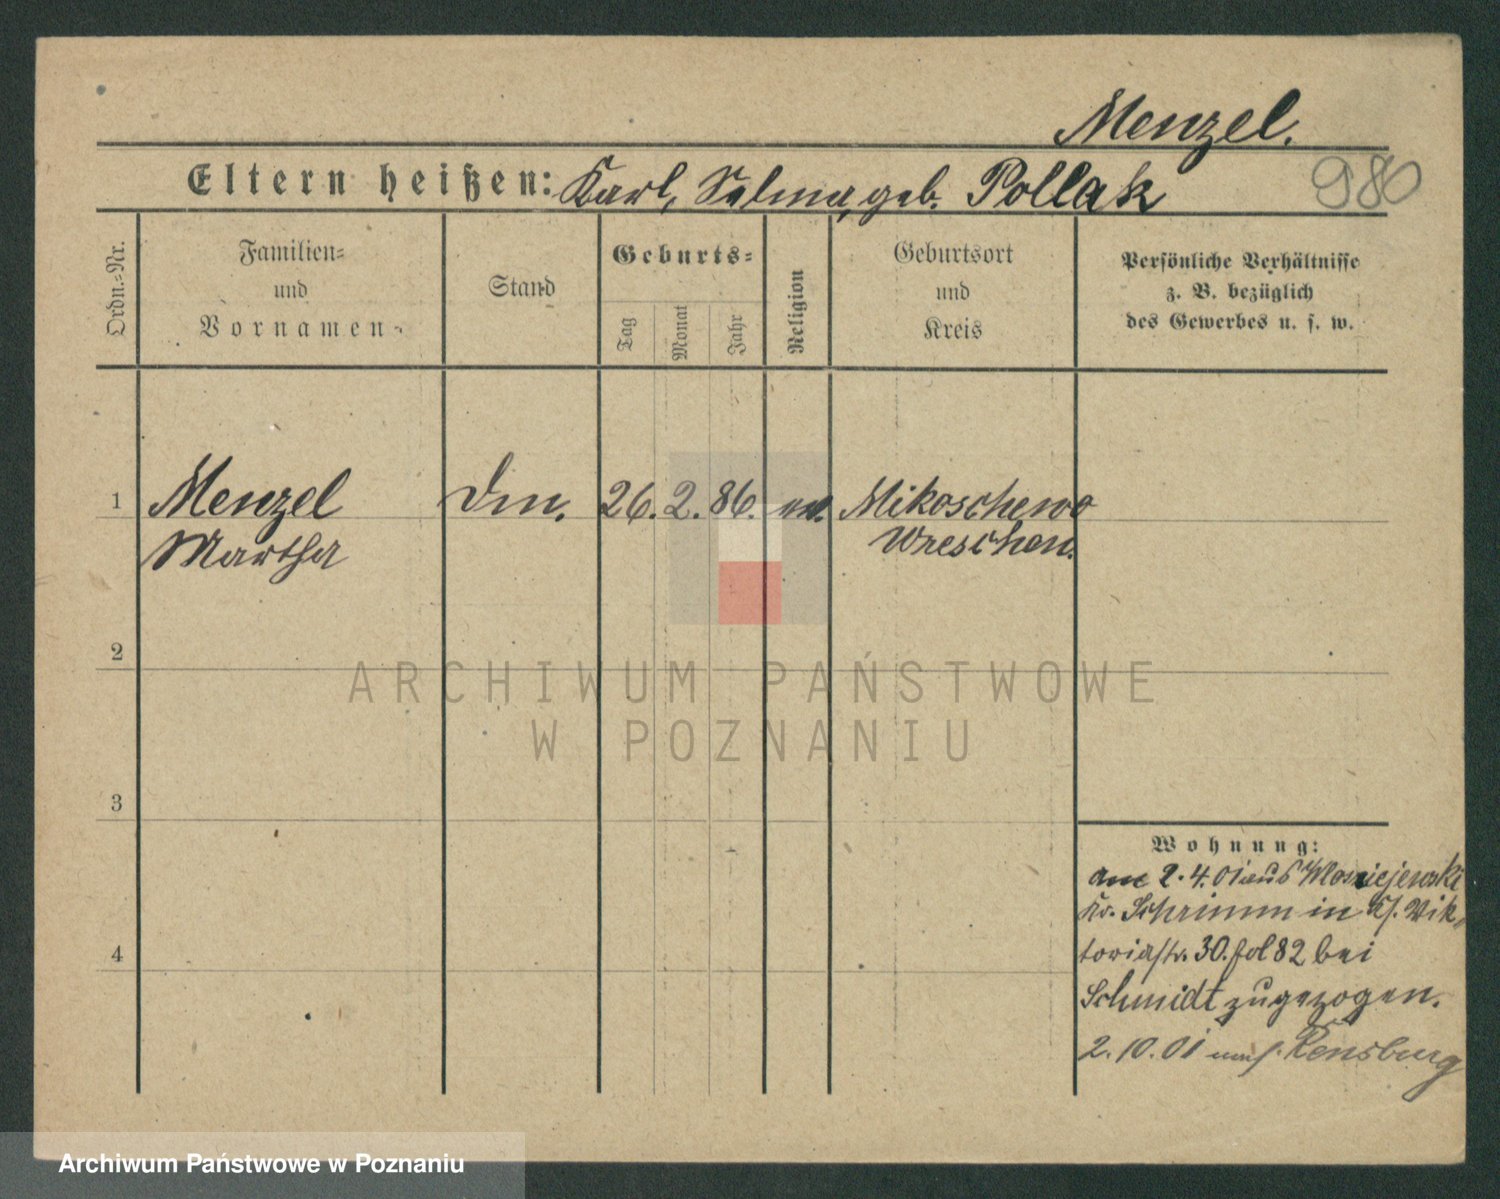 Menzel.
980
Eltern heißen: Karl, Selma, geb. Pollak
Ordn.-Nr.
Familien-
und
Vornamen-
Stand
Geburts-
Tag
Monat
Jahr
Religion
Geburtsort
und
Kreis
Persönliche Verhältnisse
z. B. bezüglich
des Gewerbes u. s. w.
1 Menzel 26. 2. 86. ev. Mikoschewo
Martha Wreschen.
2
3
4
ARCHIWUM PAŃSTWOWE
W POZNANIU
Wohnung:
2. 4. 01 aus
Kr. Schrimm in Vik-
toriastr. 30. fol 82 bei
Schmidt zugezogen.
2. 10. 01 Rensburg
Archiwum Państwowe w Poznaniu